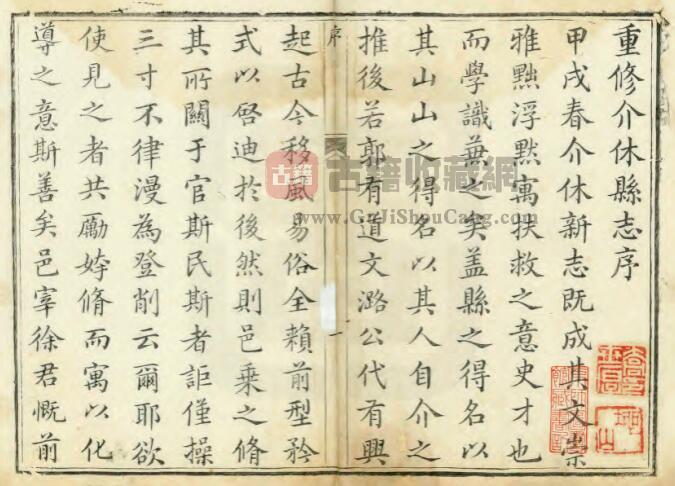 重修介休縣志序
甲戌春介休新志既成其文崇
雅黜浮默寓扶救之意史才也
而學識兼之矣蓋縣之得名以
其山山之得名以其人自介之
推後若郭有道文潞公代有興
序
一
起古今移風易俗全賴前型矜
式以啓迪於後然則邑乘之脩
其所關于官斯民斯者詎僅操
三寸不律漫為登削云爾耶欲
使見之者共勵姱脩而寓以化
導之意斯善矣邑宰徐君慨前
古籍
古籍收藏網
www.GuJiShouCang.com